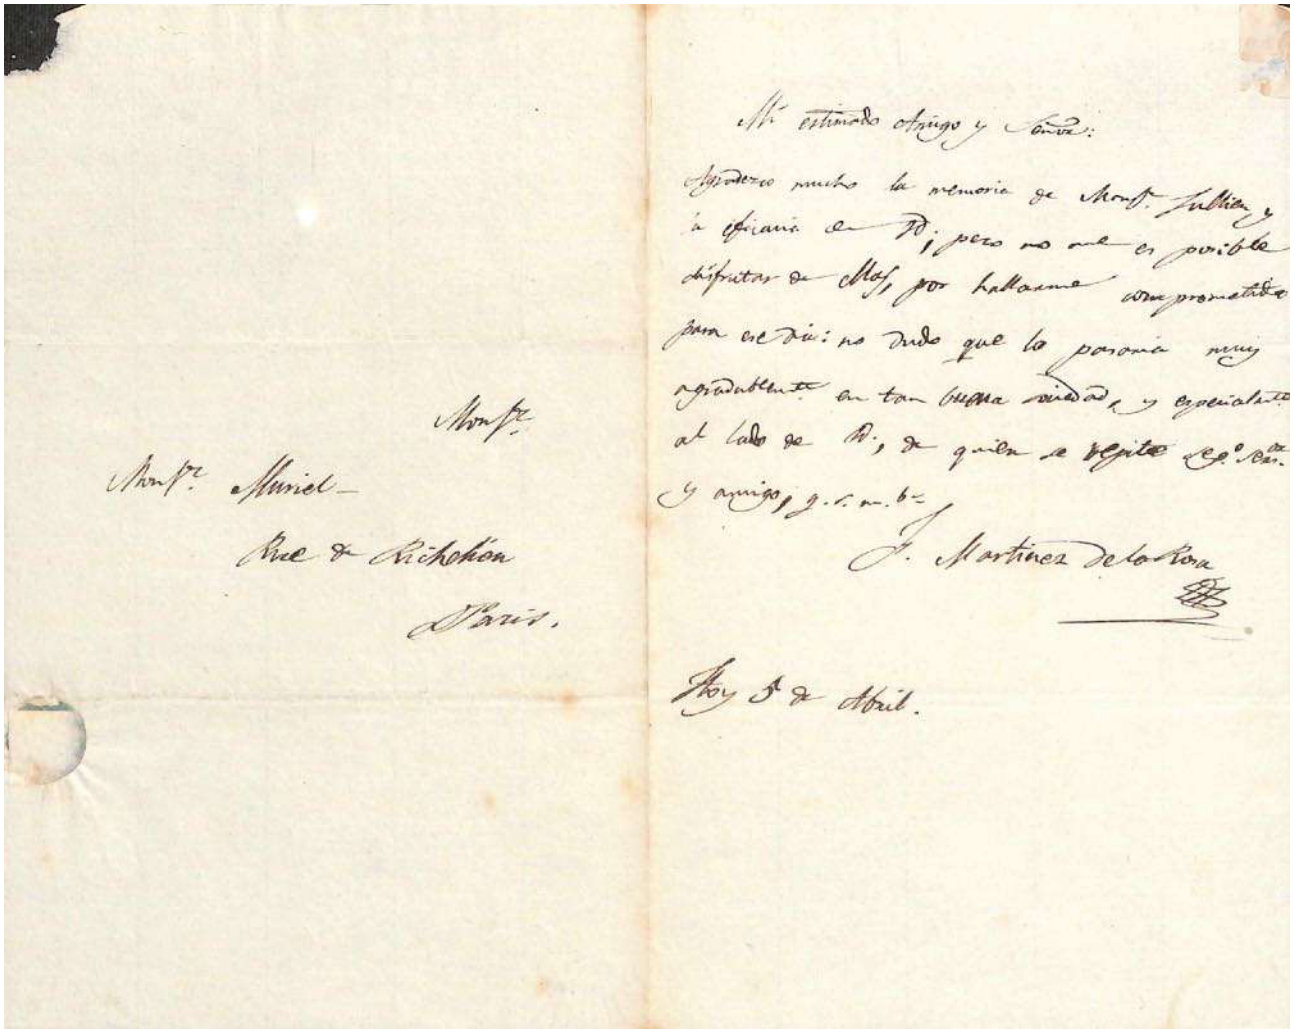 Monsr.
Monsr. Muriel
Rue de Richelieu
Paris.
Mi estimado Amigo y Señor:
Agradezco mucho la memoria de Monsr. Jullien, y
la eficacia de Vd; pero no me es posible
disfrutar de ellas, por hallarme comprometido
para ese dia: no dudo que lo pasaria muy
agradablemte. en tan buena sociedad, y especialmte.
al lado de Vd, de quien se repite
y amigo, q. s. m. b.
F. Martinez de la Rosa
Hoy 5 de Abril.